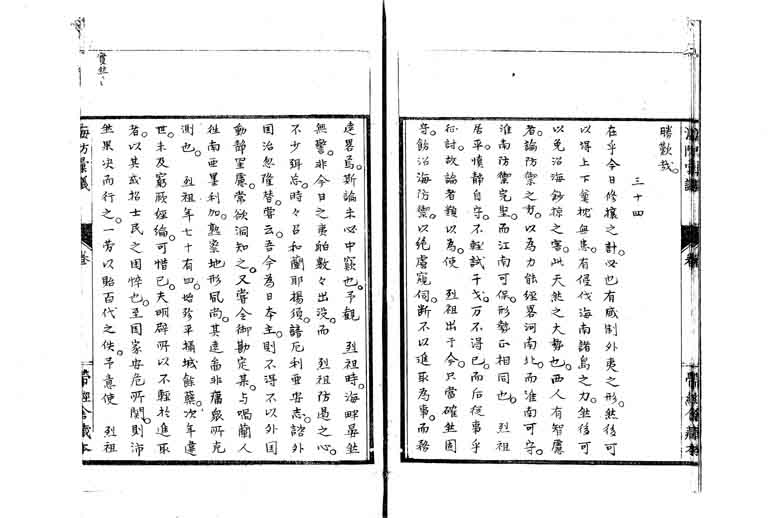 勝歎哉。
三十四
在乎今日修攘之計。必也有威制外夷之形。然後可
以得上下奠枕無患。有侵伐海南諸島之力。然後可
以免沿海鈔掠之害。此天然之大勢也。西人有智慮
者。論防禦之方。以為力能經畧河南北。而淮南可守。
淮南防禦完坚。而江南可保。形勢正相同也。 烈祖
居平愼靜自守。不輕試干戈。万不得已。而後從事乎
征討。故論者類以為。使 烈祖出于今。只當確然固
守。飭沿海防禦。以絶虜窺伺。断不以進取為事。而務
遠畧焉。斯論未必中窾也。予觀 烈祖時。海畔晏然
無警。非今日之夷舶數々出没。而 烈祖防邊之心。
不少弭忘。時々召和蘭耶揚須。諳厄利亜安志。諮外
国治忽隆替。嘗云。吾今為日本主。則不得不以外国
動静置慮。常欲洞知之。又嘗令御勘定某。与喝蘭人
往南亜墨利加。熟察地形風尚。其遠畧非庸衆所克
測也。 烈祖年七十有四。始殄平攝城餘蘖。次年違
世。未及窮厥經綸。可惜已。夫明辟所以不輕於進取
者。以其或招士民之困悴也。至国家安危所関。則沛
然果决而行之。一労以貽百代之佚。予意使 烈祖
海防彙議
卷
帶經舍藏本